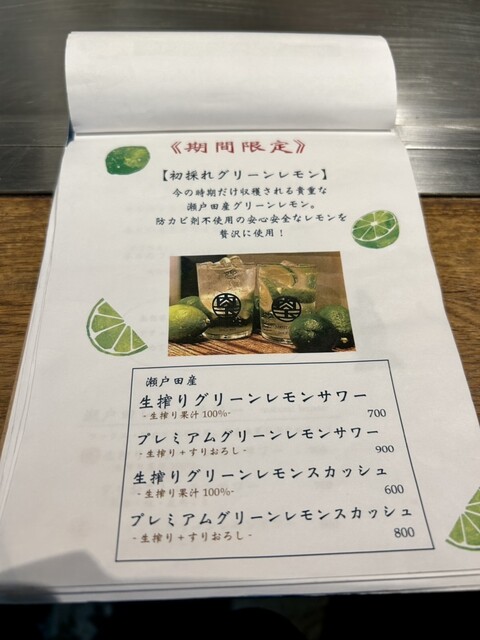 《期間限定》
【初採れグリーンレモン】
今の時期だけ収穫される貴重な
瀬戸田産グリーンレモン。
防カビ剤不使用の安心安全なレモンを
贅沢に使用！
瀬戸田産
生搾りグリーンレモンサワー
-生搾り果汁100%-
700
プレミアムグリーンレモンサワー
-生搾り+すりおろし-
900
生搾りグリーンレモンスカッシュ
-生搾り果汁100%-
600
プレミアムグリーンレモンスカッシュ
-生搾り+すりおろし-
800